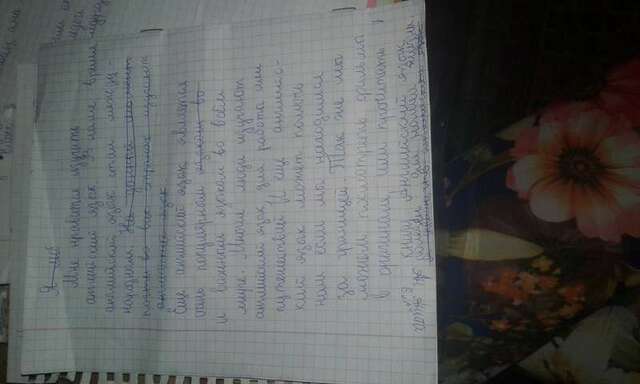 Я люб
Мне нравится изучать
английский язык. В наше время
английский язык стал между-
народным. На данный момент
почти во всех странах изучают
английский язык
Еще английский язык является
очень популярным языком во
и важным языком во всём
мире. Многие люди изучают
английский язык для работы или
путешествий И еще англий-
ский язык может помочь
нам если мы находимся
за границей. Так же мы
можем посмотреть фильмы
в оригинале, или прочитать
книгу Английский язык
для нашей жизни.